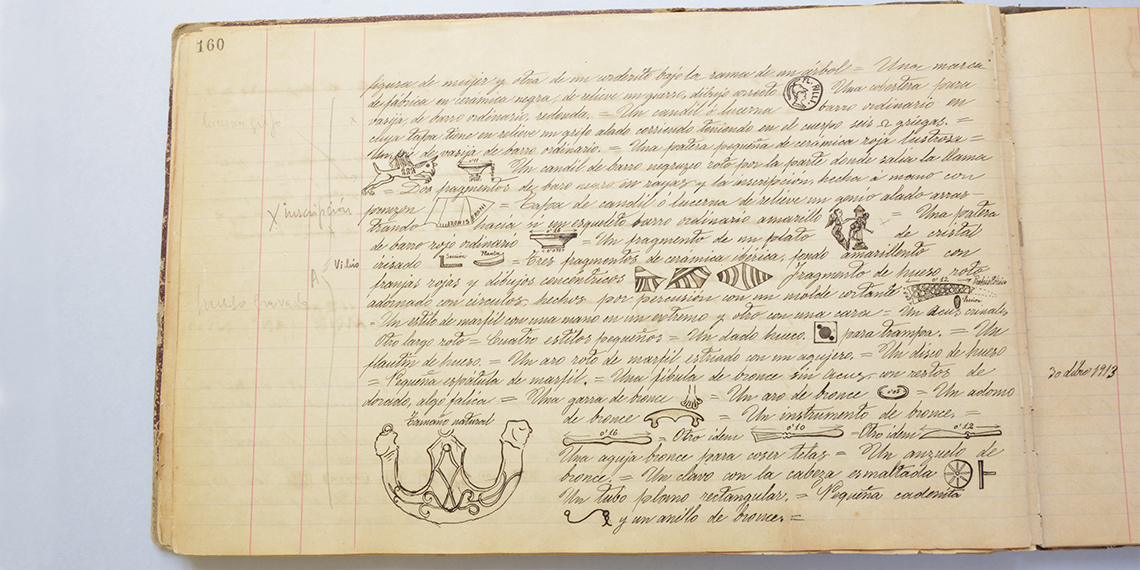 160
figura de mujer y otra de un corderito bajo la rama de un árbol = Una marca
de fábrica en cerámica negra, de relieve un guerro, dibujo correcto Una cobertera para
vasija de barro ordinario, redonda. = Un candil ó lucerna barro ordinario en
cuya tapa tiene en relieve un grifo alado corriendo teniendo en el cuerpo seis Ω griegas. =
de vasija de barro ordinario. = Una patera pequeña de cerámica roja lustrosa =
Un candil de barro negruzco roto por la parte donde salia la llama
= Dos fragmentos de baro negro en rayas y la inscripción hecha á mano con
punzon = Tapa de candil ó lucerna de relieve un genio alado arras-
trando hacia si un esqueleto barro ordinario amarillo = Una patera
de barro rojo ordinario = Un fragmento de un plato de cristal
irisado Sección Planta = Tres fragmentos de cerámica ibérica, fondo amarillento con
franjas rojas y dibujos concéntricos fragmento de hueso roto
adornado con circulos, hechos por percusión con un molde cortante 0'12
- Un estilo de marfil con una mano en un extremo y otro con una cara = Un acus crinales
Otro largo roto = Cuatro estilos pequeños = Un dado hueco. para trampa. = Un
flautin de hueso. = Un aro roto de marfil estriado con un agujero. = Un disco de hueso
= Pequeña espátula de marfil. = Una fibula de bronce sin acus, con restos de
dorado, algo falica = Una garra de bronce = Un aro de bronce = Un adorno
Tamaño natural de bronce = Un instrumento de bronce. =
0'16 = Otro idem 0'10 = Otro idem 0'12
Una aguja bronce para coser telas = Un anzuelo de
bronce. = Un clavo con la cabeza esmaltada
Un tubo plomo rectangular. = Pequeña cadenita
y un anillo de bronce. =
X inscripción
A
30 dbro 1913